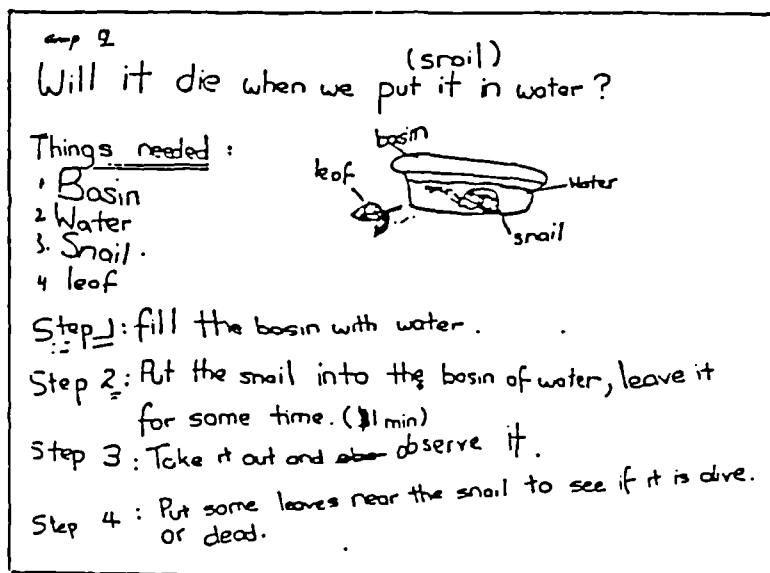 2
(snail)
Will it die when we put it in water?
Things needed:
1 Basin
2 Water
3. Snail.
4 leaf
basin
leaf
water
snail
Step 1: fill the basin with water.
Step 2: Put the snail into the basin of water, leave it
for some time. (1 min)
Step 3: Take it out and observe it.
Step 4: Put some leaves near the snail to see if it is alive.
or dead.